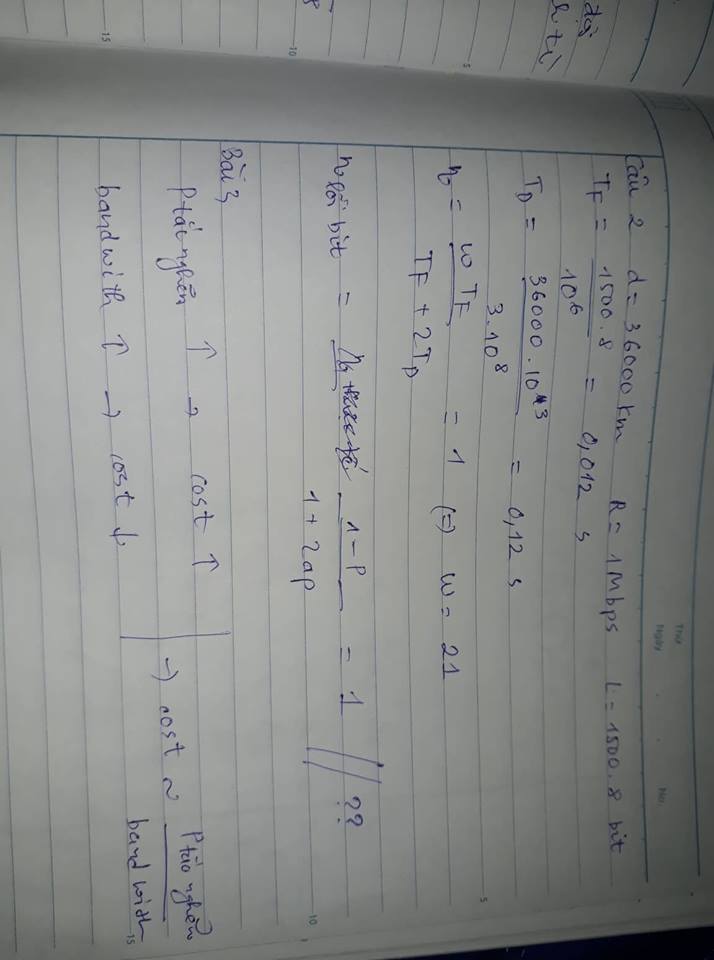 Thứ
Ngày . . No.
đội
Câu 2 d = 36000 km R = 1Mbps L = 1500.8 bit
T_F = 1500.8 / 10^6 = 0,012 s
T_D = 36000.10^3 / 3.10^8 = 0,12 s
η = w T_F / T_F + 2T_D = 1 (=) w = 21
η lỗi bit = 1-P / 1+2ap = 1 // ??
Bài 3
P tắc nghẽn ↑ → cost ↑
bandwith ↑ → cost ↓
→ cost ~ P tắc nghẽn / band with
5
10
15
5
10
15